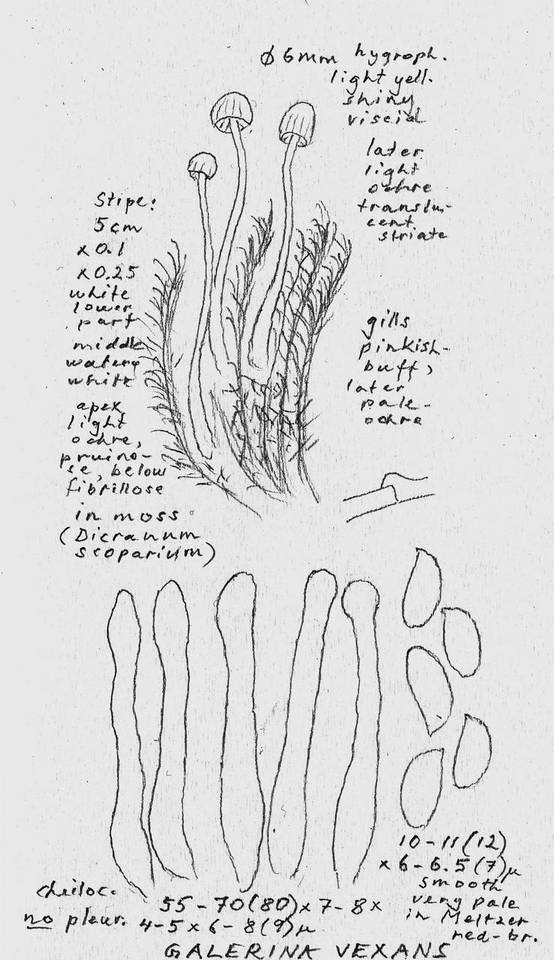 ϕ 6mm hygroph.
light yell.
shiny
viscid
later
light
ochre
translu-
cent
striate
Stipe:
5 cm
x 0.1
x 0.25
white
lower
part
middle
watery
white
apex
light
ochre,
pruino-
se, below
fibrillose
in moss
(Dicranum
scoparium)
gills
pinkish-
buff,
later
pale-
ochre
10-11(12)
x 6-6.5(7)µ
smooth
very pale
in Meltzer
red-br.
cheiloc.
no pleur.
55-70(80) x 7-8 x
4-5 x 6-8(9)µ
GALERINA VEXANS